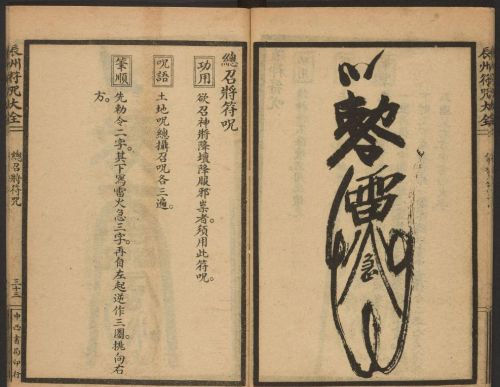 辰州符咒大全
敕
雷
火
急
總召將符咒
功用
欲召神將降壇降服邪祟者。須用此符咒。
呪語
土地咒總攝召咒各三遍。
筆順
先勅令二字。其下寫雷火急三字。再自左起逆作三圈。挑向右
方。
辰州符咒大全
總召將符咒
三十三
中西書局印行